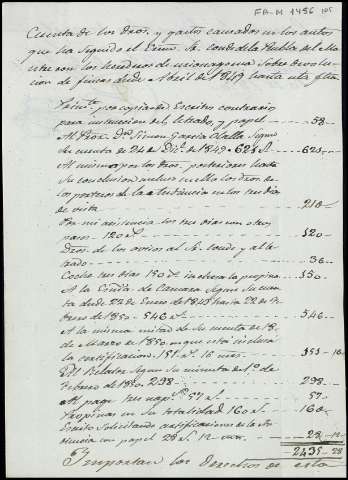 FA-M 1486 105
Cuenta de los Dros. y gastos causados en los autos
que ha seguido el Exmo. Sr. conde de la Puebla del Ma
estre con los herederos de sobre devolu
cion de fincas desde Abril de 1849 hasta esta fha.
por copias del Escrito contrario
para instruccion del letrado, y papel 58.
Al Proor. Dn. Simon Garcia Valle segun
su cuenta de 24 de Dice. de 1849 625 623,,
Al mismo por los Dros. posteriores hasta
su conclusion incluso en ello los Dros. de
los porteros de la audiencia en los tres dias
de vista 210
Por mi asistencia los tres dias con otros
pasos 120 120
Dros. de los avisos al Sr. conde y al le
trado 36
Coche tres dias 150 inclusa la propina 150
A la de Camara segun su cuen
ta desde 22 de Enero de 1848 hasta 22 de
Enero de 1850 546 546
A la misma mitad de su cuenta de 18
de Marzo de 1850 en que está inclusa
la certificacion 151 16 mrs. 151 16
Al Relator segun su cuenta de 1º de
Febrero de 1850 298 298
Al page tres 57 57
Propinas en su totalidad 160 160
Escrito solicitando certificacion de la Sen
tencia con papel 28 12 mrs. 28 12
2435 28
Importan los derechos de esta